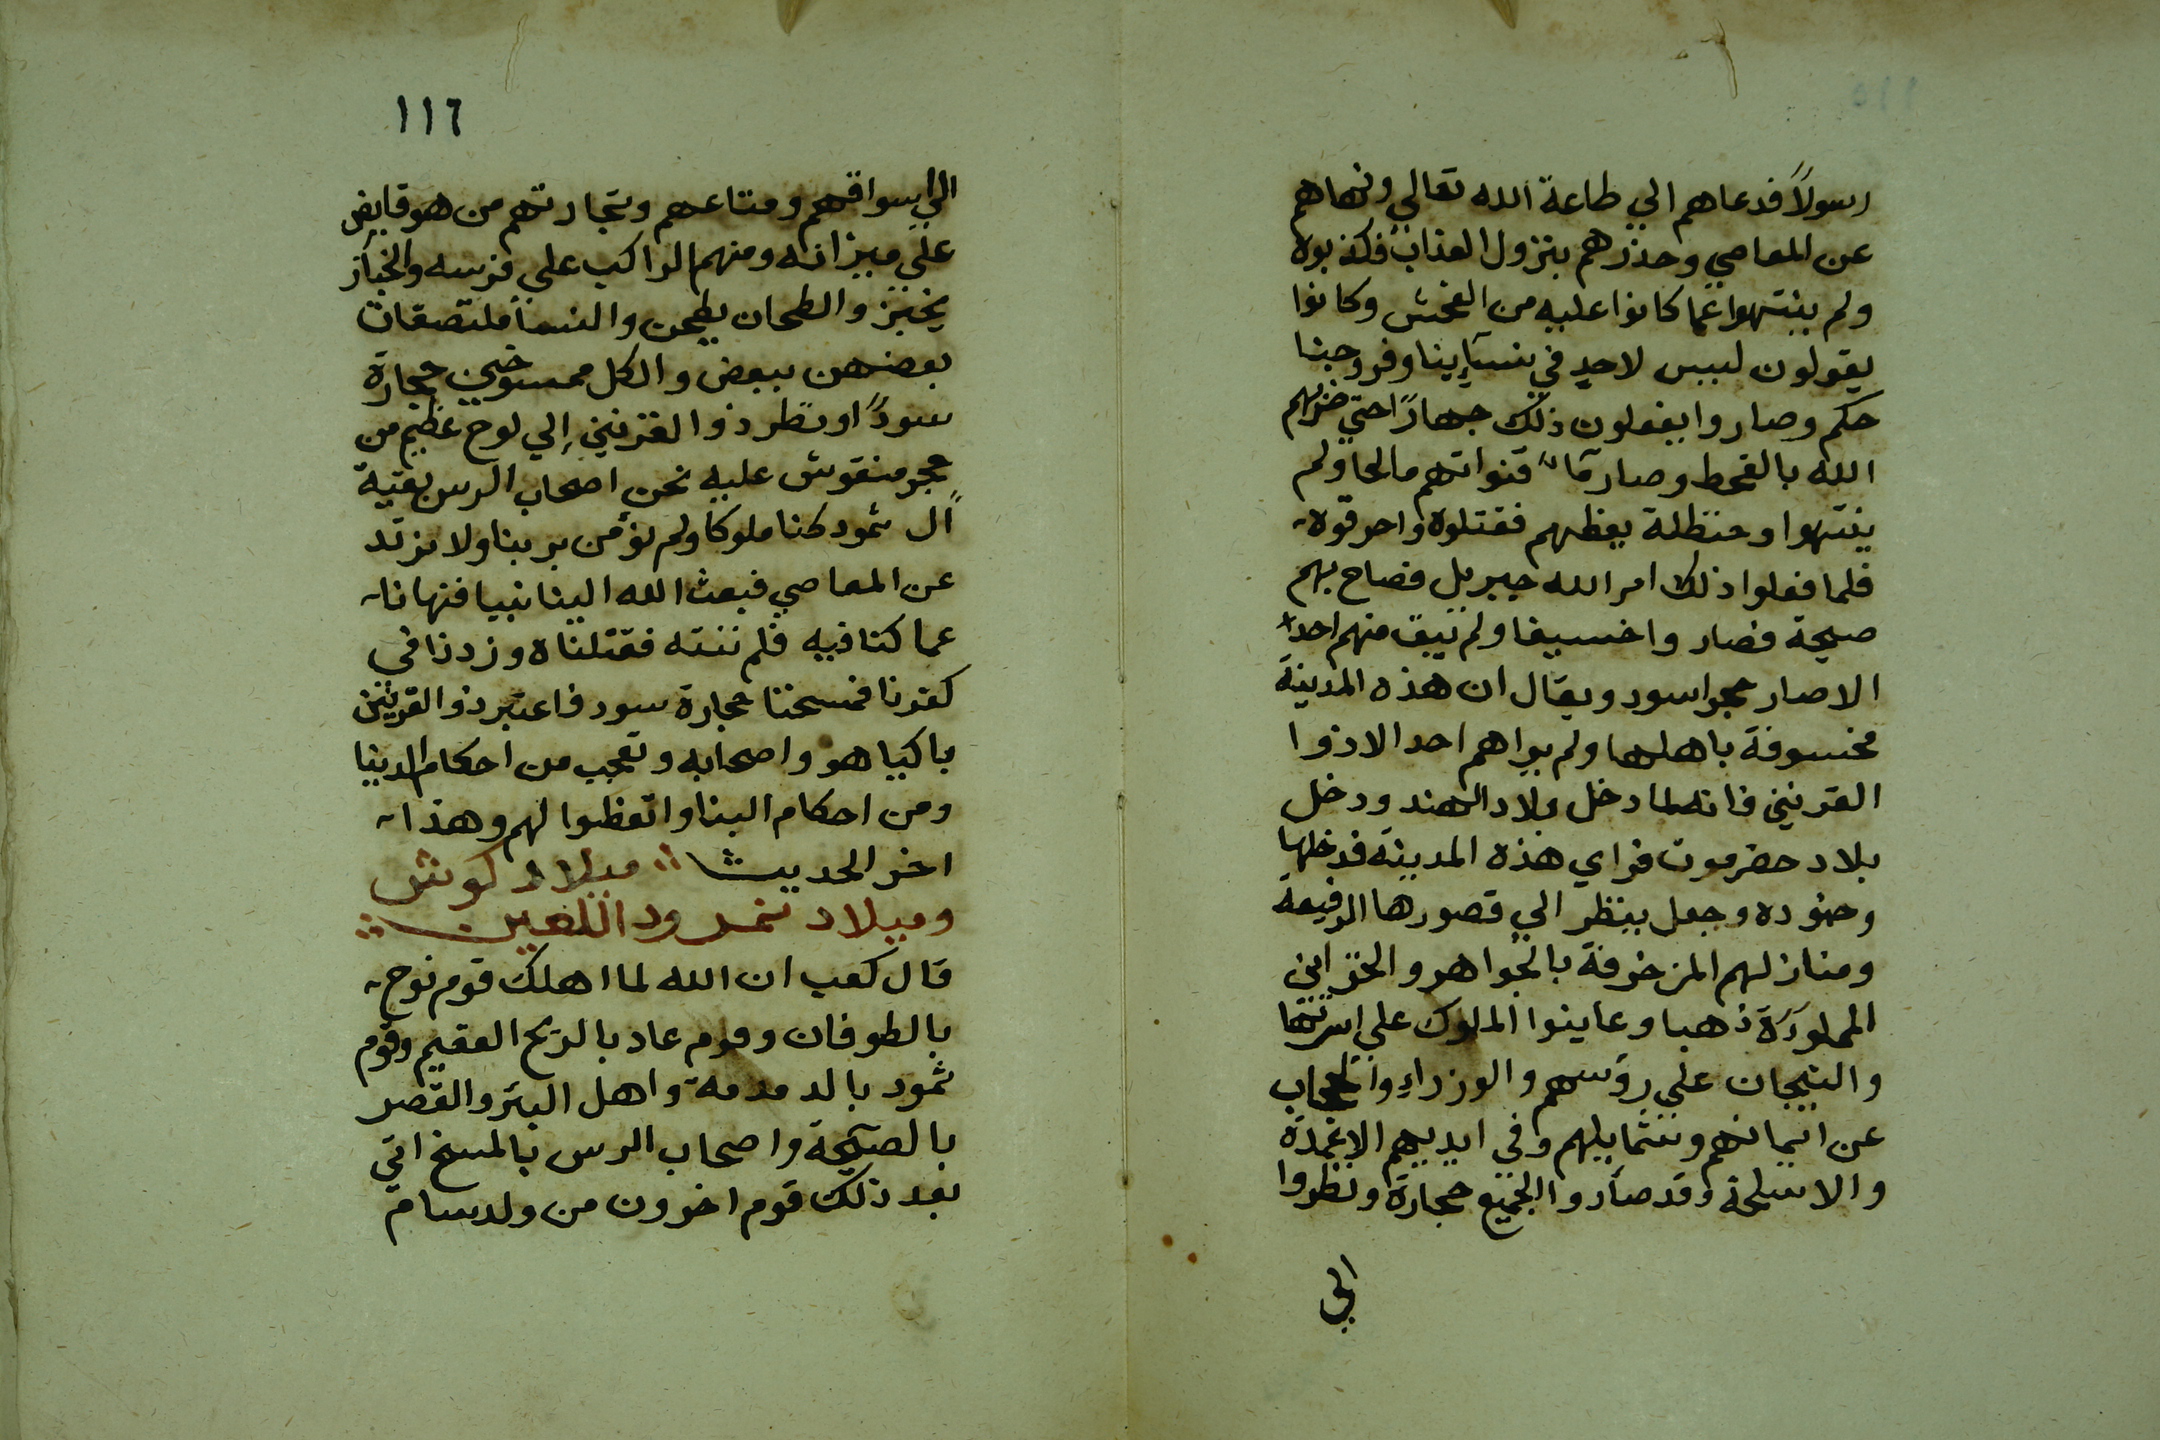 رسولاً فدعاهم الي طاعة الله تعالي ونهاهم
عن المعاصي وحذرهم بنزول العذاب فكذبوه
ولم ينتهوا عما كانوا عليه من الفحش وكانوا
يقولون ليس لاحدٍ في نسآءينا وفروجنا
حكم وصاروا يفعلون ذلك جهاراً حتي ضربهم
الله بالقحط وصار مآء قنواتهم مالحا ولم
ينتهوا وحنظلة يعظهم فقتلوه واحرقوه
فلما فعلوا ذلك امر الله جبريل فصاح بهم
صيحة فصار واخسيفا ولم يبق منهم احداً
الا صار حجرا سود ويقال ان هذه المدينة
مخسوفة باهلها ولم يراهم احد الا ذوا
القرنين فانه لما دخل بلاد الهند ودخل
بلاد حضرموت فراي هذه المدينة فدخلها
وجنوده وجعل ينظر الي قصورها الرفيعة
ومنازلهم المزخرفة بالجواهر والخزاين
المملوءة ذهبا وعاينوا الملوك علي اسرتها
والتيجان علي رؤسهم والوزراء والحجاب
عن ايمانهم وشمايلهم وفي ايديهم الاغمدة
والاسلحة وقد صاروا الجميع حجارة ونظروا
الي
١١٦
الي اسواقهم ومتاعهم وتجارتهم من هو قابض
علي ميزانه ومنهم الراكب علي فرسه والخباز
يخبز والطحان يطحن والنسآ ملتصقات
بعضهن ببعض والكل ممسوخين حجارة
سوداً ونظر ذوا القرنين الي لوح عظيم من
حجر منقوش عليه نحن اصحاب الرس بقية
آل ثمود كنا ملوكا ولم نؤمن بربنا ولا نرتد
عن المعاصي فبعث الله الينا نبيا فنهانا
عما كنا فيه فلم ننته فقتلناه وزدنا في
كفرنا فمسخنا حجارة سود فاعتبر ذو القرنين
باكيا هو واصحابه وتعجب من احكام الدنيا
ومن احكام البنا واتعظوا لهم وهذا
اخر الحديث ؞ ميلاد كوش
وميلاد نمرود اللعين ؞
قال كعب ان الله لما اهلك قوم نوح
بالطوفان وقوم عاد بالريح العقيم وقوم
ثمود بالدمدمة واهل البئر والقصر
بالصيحة واصحاب الرس بالمسخ اتي
بعد ذلك قوم اخرون من ولد سام